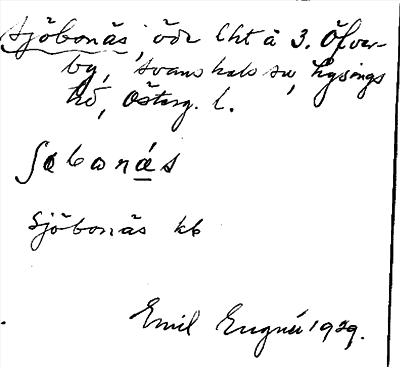 Sjöbonäs, öde lht å 3. Öfver-
by, Svanhals sn, Lysings
hd, Österg. l.
ʃøbonás
Sjöbonäs kb
Emil Engnér 1929.